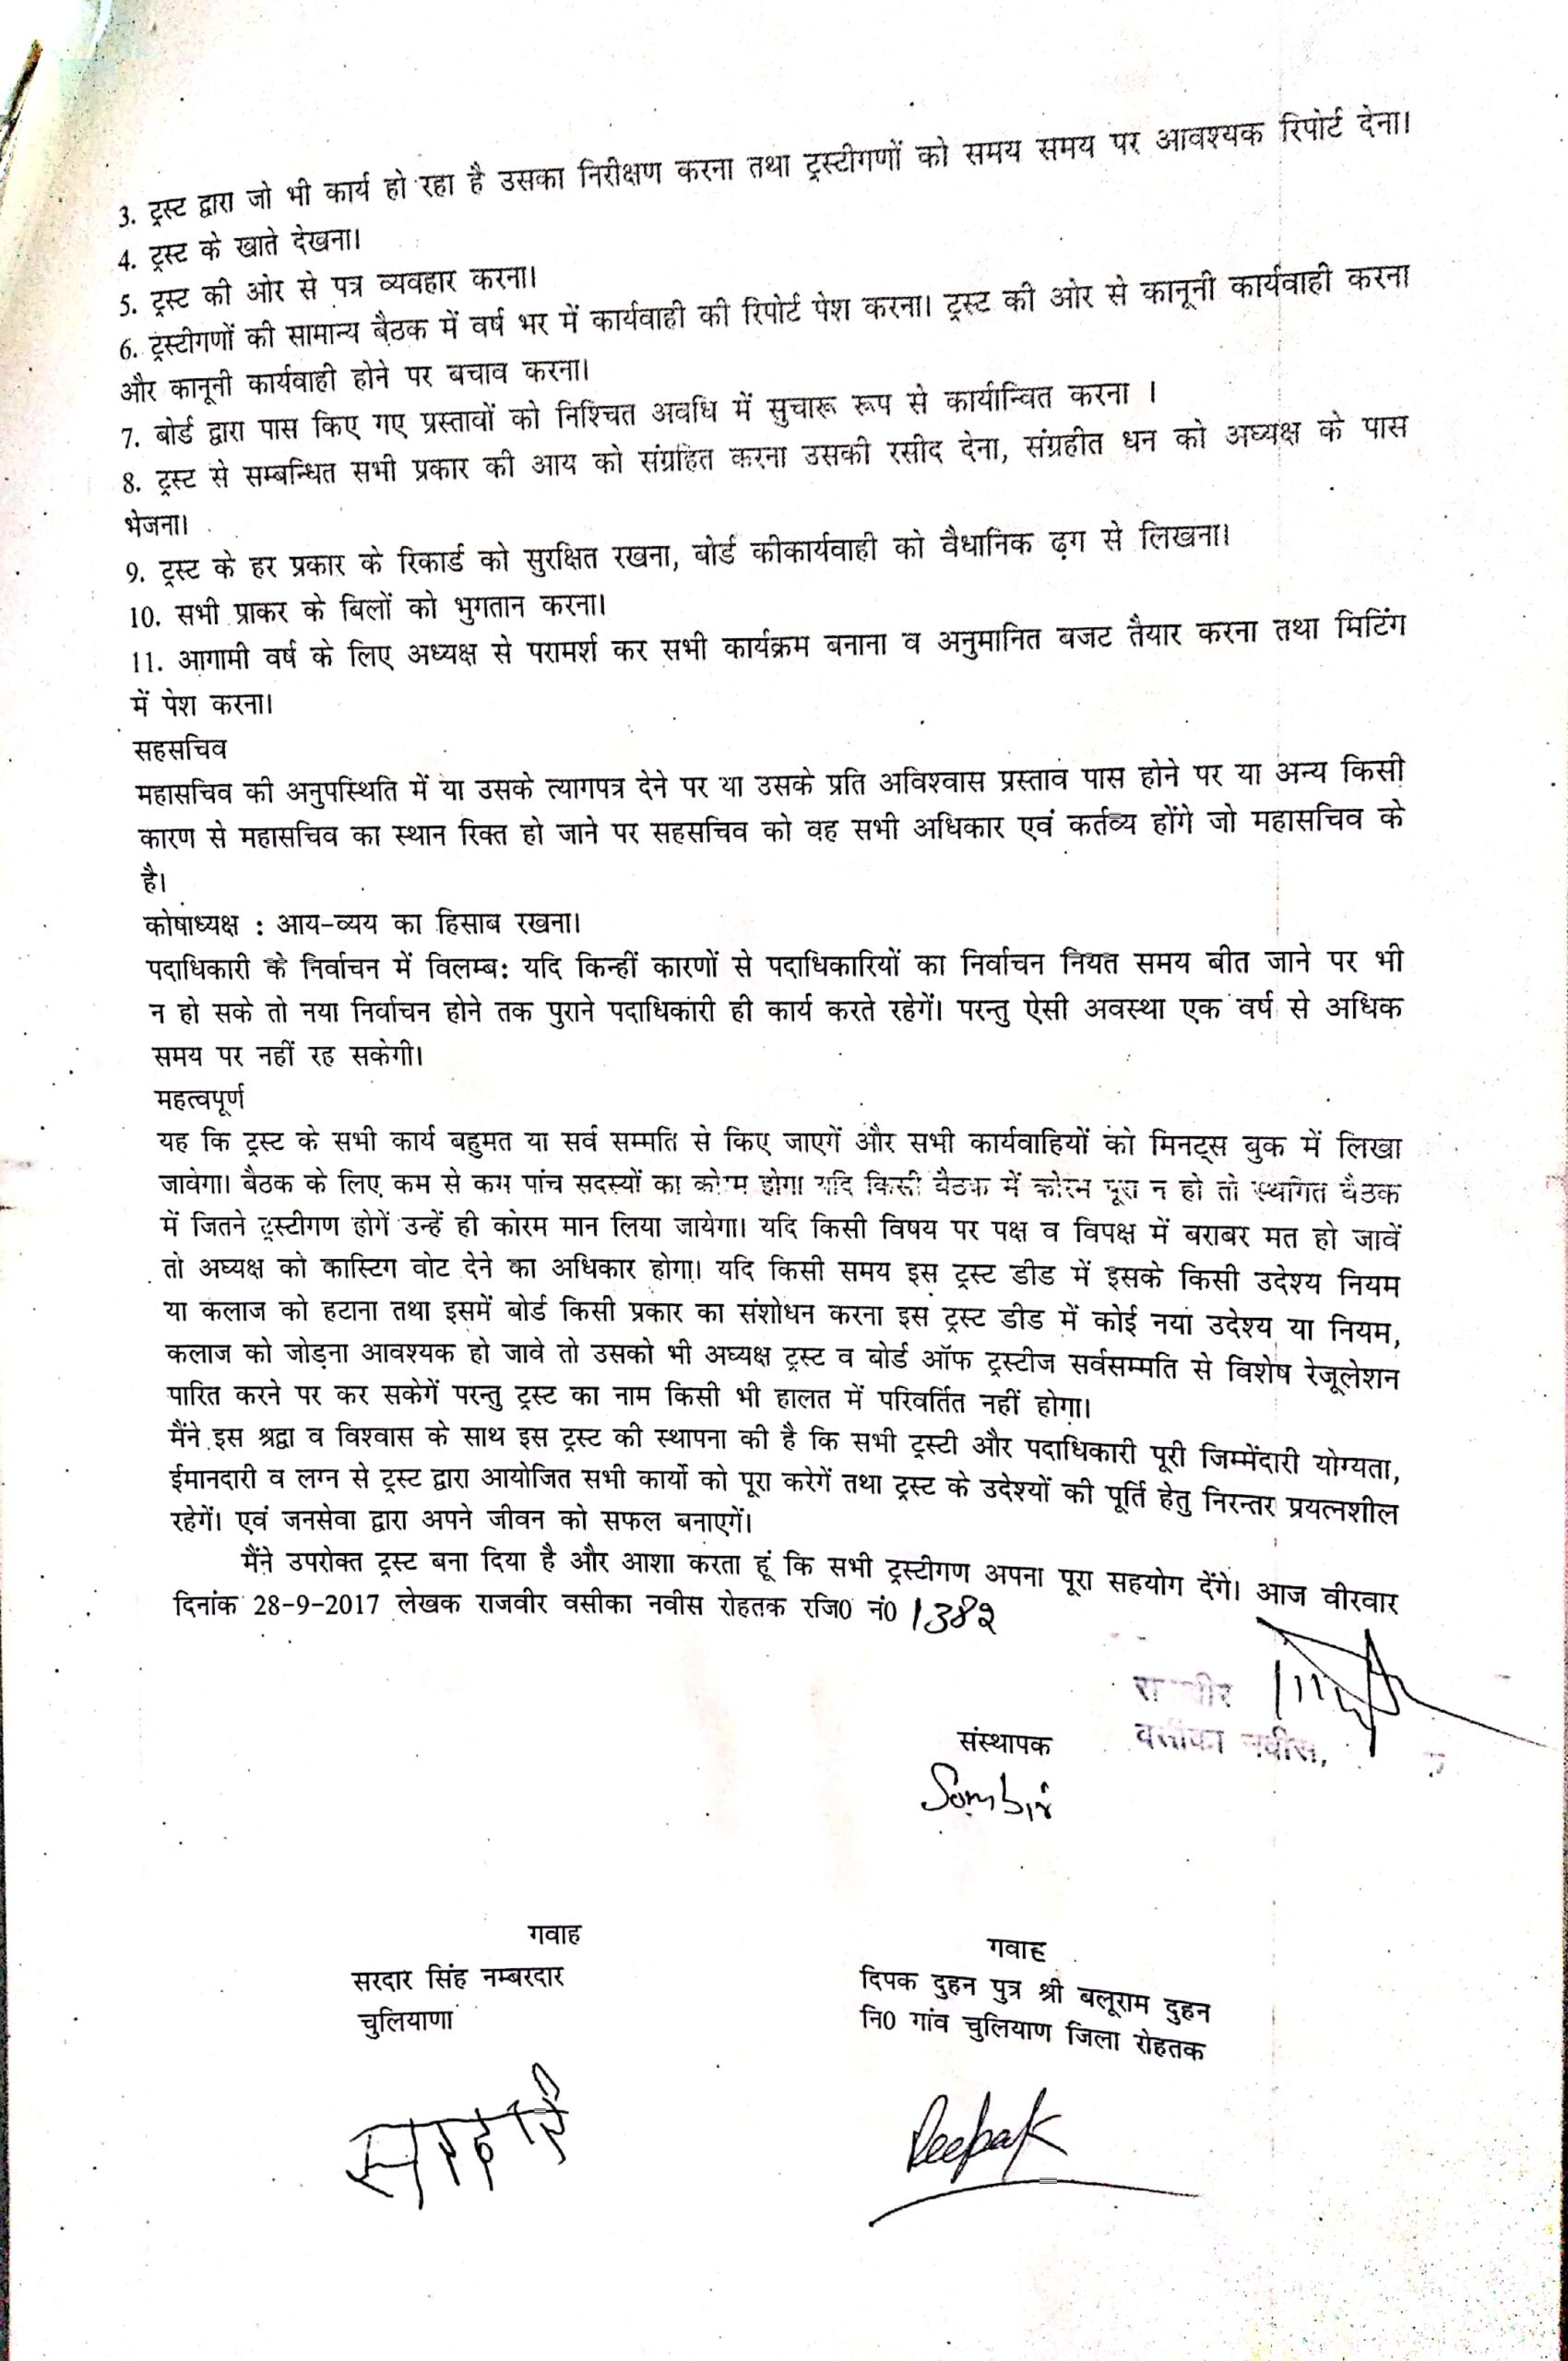 3. ट्रस्ट द्वारा जो भी कार्य हो रहा है उसका निरीक्षण करना तथा ट्रस्टीगणों को समय समय पर आवश्यक रिपोर्ट देना।
4. ट्रस्ट के खाते देखना।
5. ट्रस्ट की ओर से पत्र व्यवहार करना।
6. ट्रस्टीगणों की सामान्य बैठक में वर्ष भर में कार्यवाही की रिपोर्ट पेश करना। ट्रस्ट की ओर से कानूनी कार्यवाही करना
और कानूनी कार्यवाही होने पर बचाव करना।
7. बोर्ड द्वारा पास किए गए प्रस्तावों को निश्चित अवधि में सुचारू रूप से कार्यान्वित करना ।
8. ट्रस्ट से सम्बन्धित सभी प्रकार की आय को संग्रहित करना उसकी रसीद देना, संग्रहीत धन को अघ्यक्ष के पास
भेजना।
9. ट्रस्ट के हर प्रकार के रिकार्ड को सुरक्षित रखना, बोर्ड कीकार्यवाही को वैधानिक ढ़ग से लिखना।
10. सभी प्राकर के बिलों को भुगतान करना।
11. आगामी वर्ष के लिए अध्यक्ष से परामर्श कर सभी कार्यक्रम बनाना व अनुमानित बजट तैयार करना तथा मिटिंग
में पेश करना।
सहसचिव
महासचिव की अनुपस्थिति में या उसके त्यागपत्र देने पर या उसके प्रति अविश्वास प्रस्ताव पास होने पर या अन्य किसी
कारण से महासचिव का स्थान रिक्त हो जाने पर सहसचिव को वह सभी अधिकार एवं कर्तव्य होंगे जो महासचिव के
है।
कोषाध्यक्ष : आय-व्यय का हिसाब रखना।
पदाधिकारी के निर्वाचन में विलम्ब: यदि किन्हीं कारणों से पदाधिकारियों का निर्वाचन नियत समय बीत जाने पर भी
न हो सके तो नया निर्वाचन होने तक पुराने पदाधिकारी ही कार्य करते रहेगें। परन्तु ऐसी अवस्था एक वर्ष से अधिक
समय पर नहीं रह सकेगी।
महत्वपूर्ण
यह कि ट्रस्ट के सभी कार्य बहुमत या सर्व सम्मति से किए जाएगें और सभी कार्यवाहियों को मिनट्स बुक में लिखा
जावेगा। बैठक के लिए कम से कम पांच सदस्यों का कोरम होगा यदि किसी बैठक में कोरम पूरा न हो तो स्थगित बैठक
में जितने ट्रस्टीगण होगें उन्हें ही कोरम मान लिया जायेगा। यदि किसी विषय पर पक्ष व विपक्ष में बराबर मत हो जावें
तो अघ्यक्ष को कास्टिग वोट देने का अधिकार होगा। यदि किसी समय इस ट्रस्ट डीड में इसके किसी उदेश्य नियम
या कलाज को हटाना तथा इसमें बोर्ड किसी प्रकार का संशोधन करना इस ट्रस्ट डीड में कोई नया उदेश्य या नियम,
कलाज को जोड़ना आवश्यक हो जावे तो उसको भी अघ्यक्ष ट्रस्ट व बोर्ड ऑफ ट्रस्टीज सर्वसम्मति से विशेष रेजूलेशन
पारित करने पर कर सकेगें परन्तु ट्रस्ट का नाम किसी भी हालत में परिवर्तित नहीं होगा।
मैंने इस श्रद्वा व विश्वास के साथ इस ट्रस्ट की स्थापना की है कि सभी ट्रस्टी और पदाधिकारी पूरी जिम्मेंदारी योग्यता,
ईमानदारी व लग्न से ट्रस्ट द्वारा आयोजित सभी कार्यो को पूरा करेगें तथा ट्रस्ट के उदेश्यों की पूर्ति हेतु निरन्तर प्रयत्नशील
रहेगें। एवं जनसेवा द्वारा अपने जीवन को सफल बनाएगें।
मैंने उपरोक्त ट्रस्ट बना दिया है और आशा करता हूं कि सभी ट्रस्टीगण अपना पूरा सहयोग देंगे। आज वीरवार
दिनांक 28-9-2017 लेखक राजवीर वसीका नवीस रोहतक रजि0 नं0 1382
वसीका नवीस,
संस्थापक
Sombir
गवाह
सरदार सिंह नम्बरदार
चुलियाणा
सरदार
गवाह
दिपक दुहन पुत्र श्री बलूराम दुहन
नि0 गांव चुलियाण जिला रोहतक
Deepak